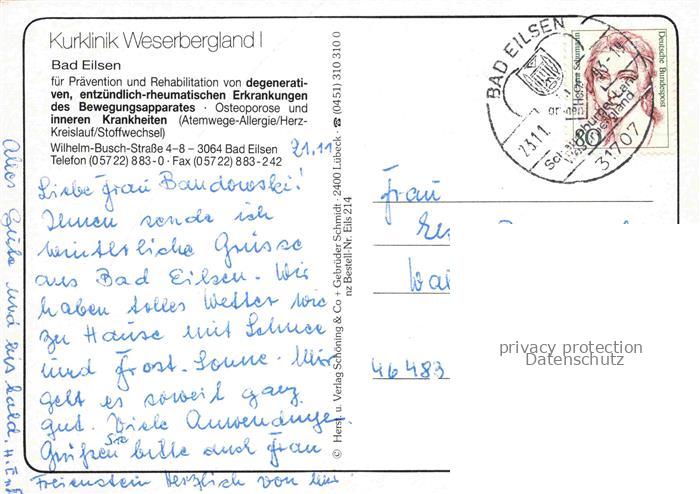 Kurklinik Weserbergland I
Bad Eilsen
für Prävention und Rehabilitation von degenerati-
ven, entzündlich-rheumatischen Erkrankungen
des Bewegungsapparates · Osteoporose und
inneren Krankheiten (Atemwege-Allergie/Herz-
Kreislauf/Stoffwechsel)
Wilhelm-Busch-Straße 4–8 – 3064 Bad Eilsen
Telefon (05722) 883-0 · Fax (05722) 883-242
21.11
Liebe Frau Bandowski!
Ihnen sende ich
winterliche Grüsse
aus Bad Eilsen. Wir
haben tolles Wetter wie
zu Hause mit Schnee
und Frost. Sonne. Mir
geht es soweit ganz
gut. Viele Anwendungen.
Grüßen Sie bitte auch Frau
Freienstein Herzlich von mir
Alles Gute und bis bald, H.
© Herst. u. Verlag Schöning & Co + Gebrüder Schmidt · 2400 Lübeck · ☎ (0451) 310 310 0
nz Bestell-Nr. Eils 214
BAD EILSEN
23.11.
31707
Deutsche Bundespost
80
Frau
46483
privacy protection
Datenschutz